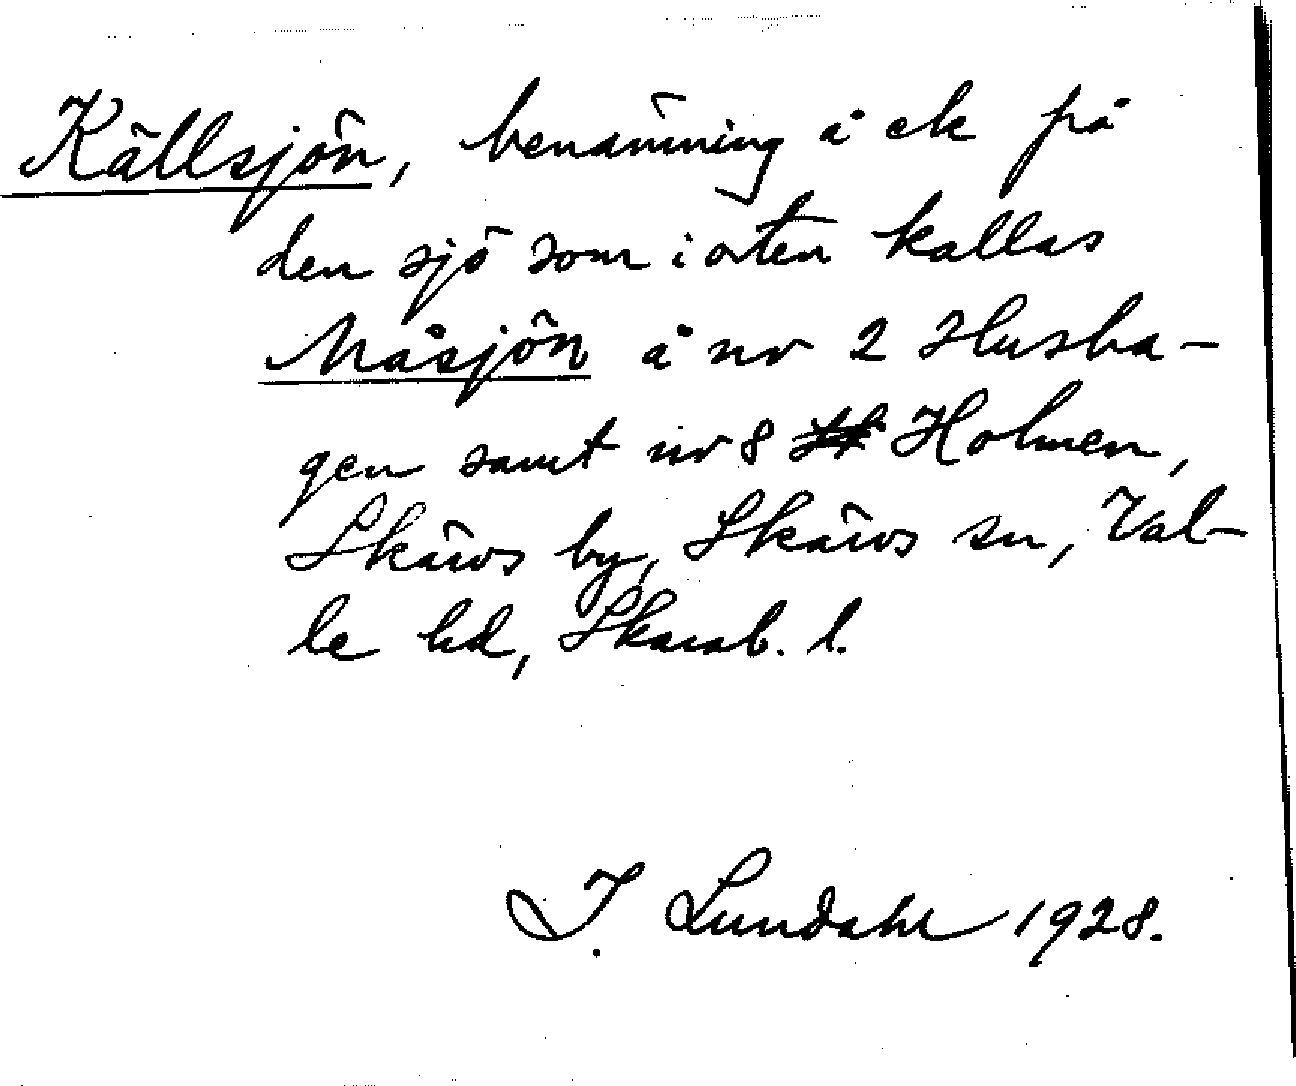 Källsjön, benämning å ek på
den sjö som i orten kallas
Måsjön å nr 2 Husha-
gen samt nr 8 Holmen,
Skärvs by, Skärvs sn, Val-
le hd, Skarab. l.
I. Lundahl 1928.